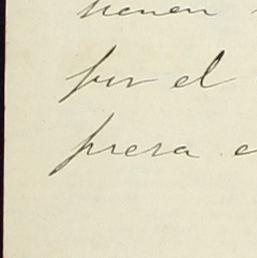 tienen
por el
presa e